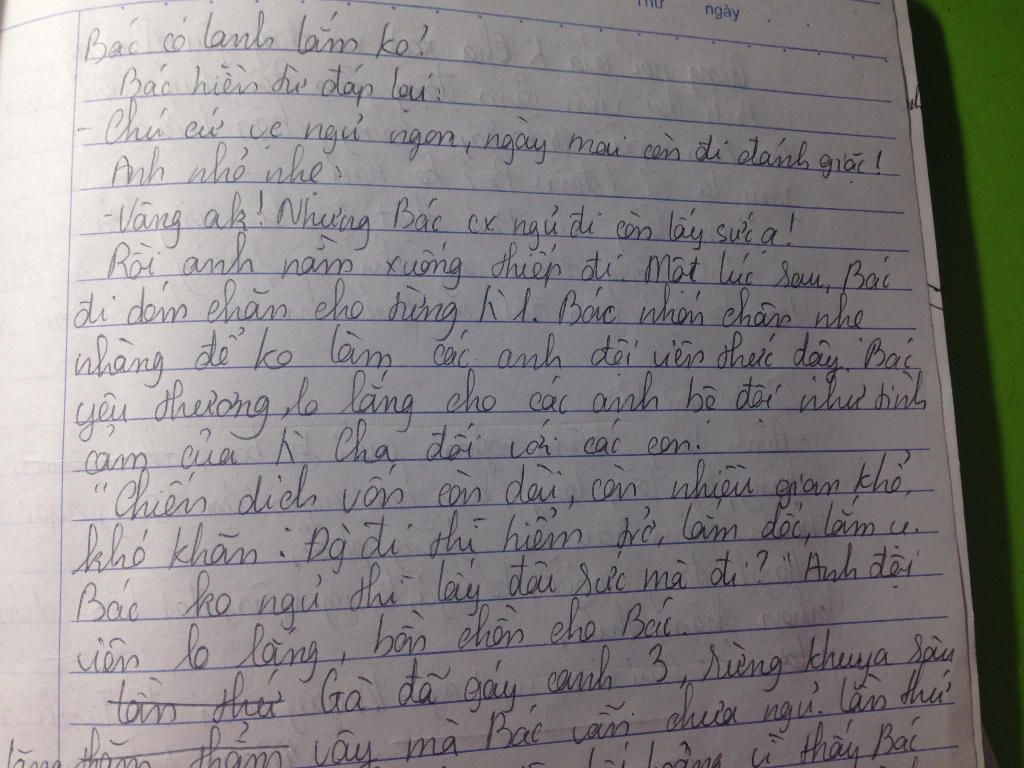 Thứ ngày
Bác có lanh lắm ko?
Bác hiền từ đáp lại:
- Chú cứ ngủ ngon, ngày mai còn đi đánh giặc!
Anh nhỏ nhẹ:
- Vâng ak! Nhưng Bác cx ngủ đi còn lấy sức ạ!
Rồi anh nằm xuống thiếp đi. Một lúc sau, Bác
đi dém chăn cho từng . Bác nhón chân nhẹ
nhàng để ko làm các anh đội viên thức dậy. Bác
yêu thương, lo lắng cho các anh bộ đội như tình
cảm của Cha đối với các con.
"Chiến dịch vốn còn dài, còn nhiều gian khổ,
khó khăn. đi thì hiểm trở, lắm dốc, lắm ụ.
Bác ko ngủ thì lấy đâu sức mà đi?" Anh đội
viên lo lắng, bồn chồn cho Bác.
Gà đã gáy canh 3, rừng khuya sâu
vậy mà Bác vẫn chưa ngủ. Lần thứ
thấy Bác